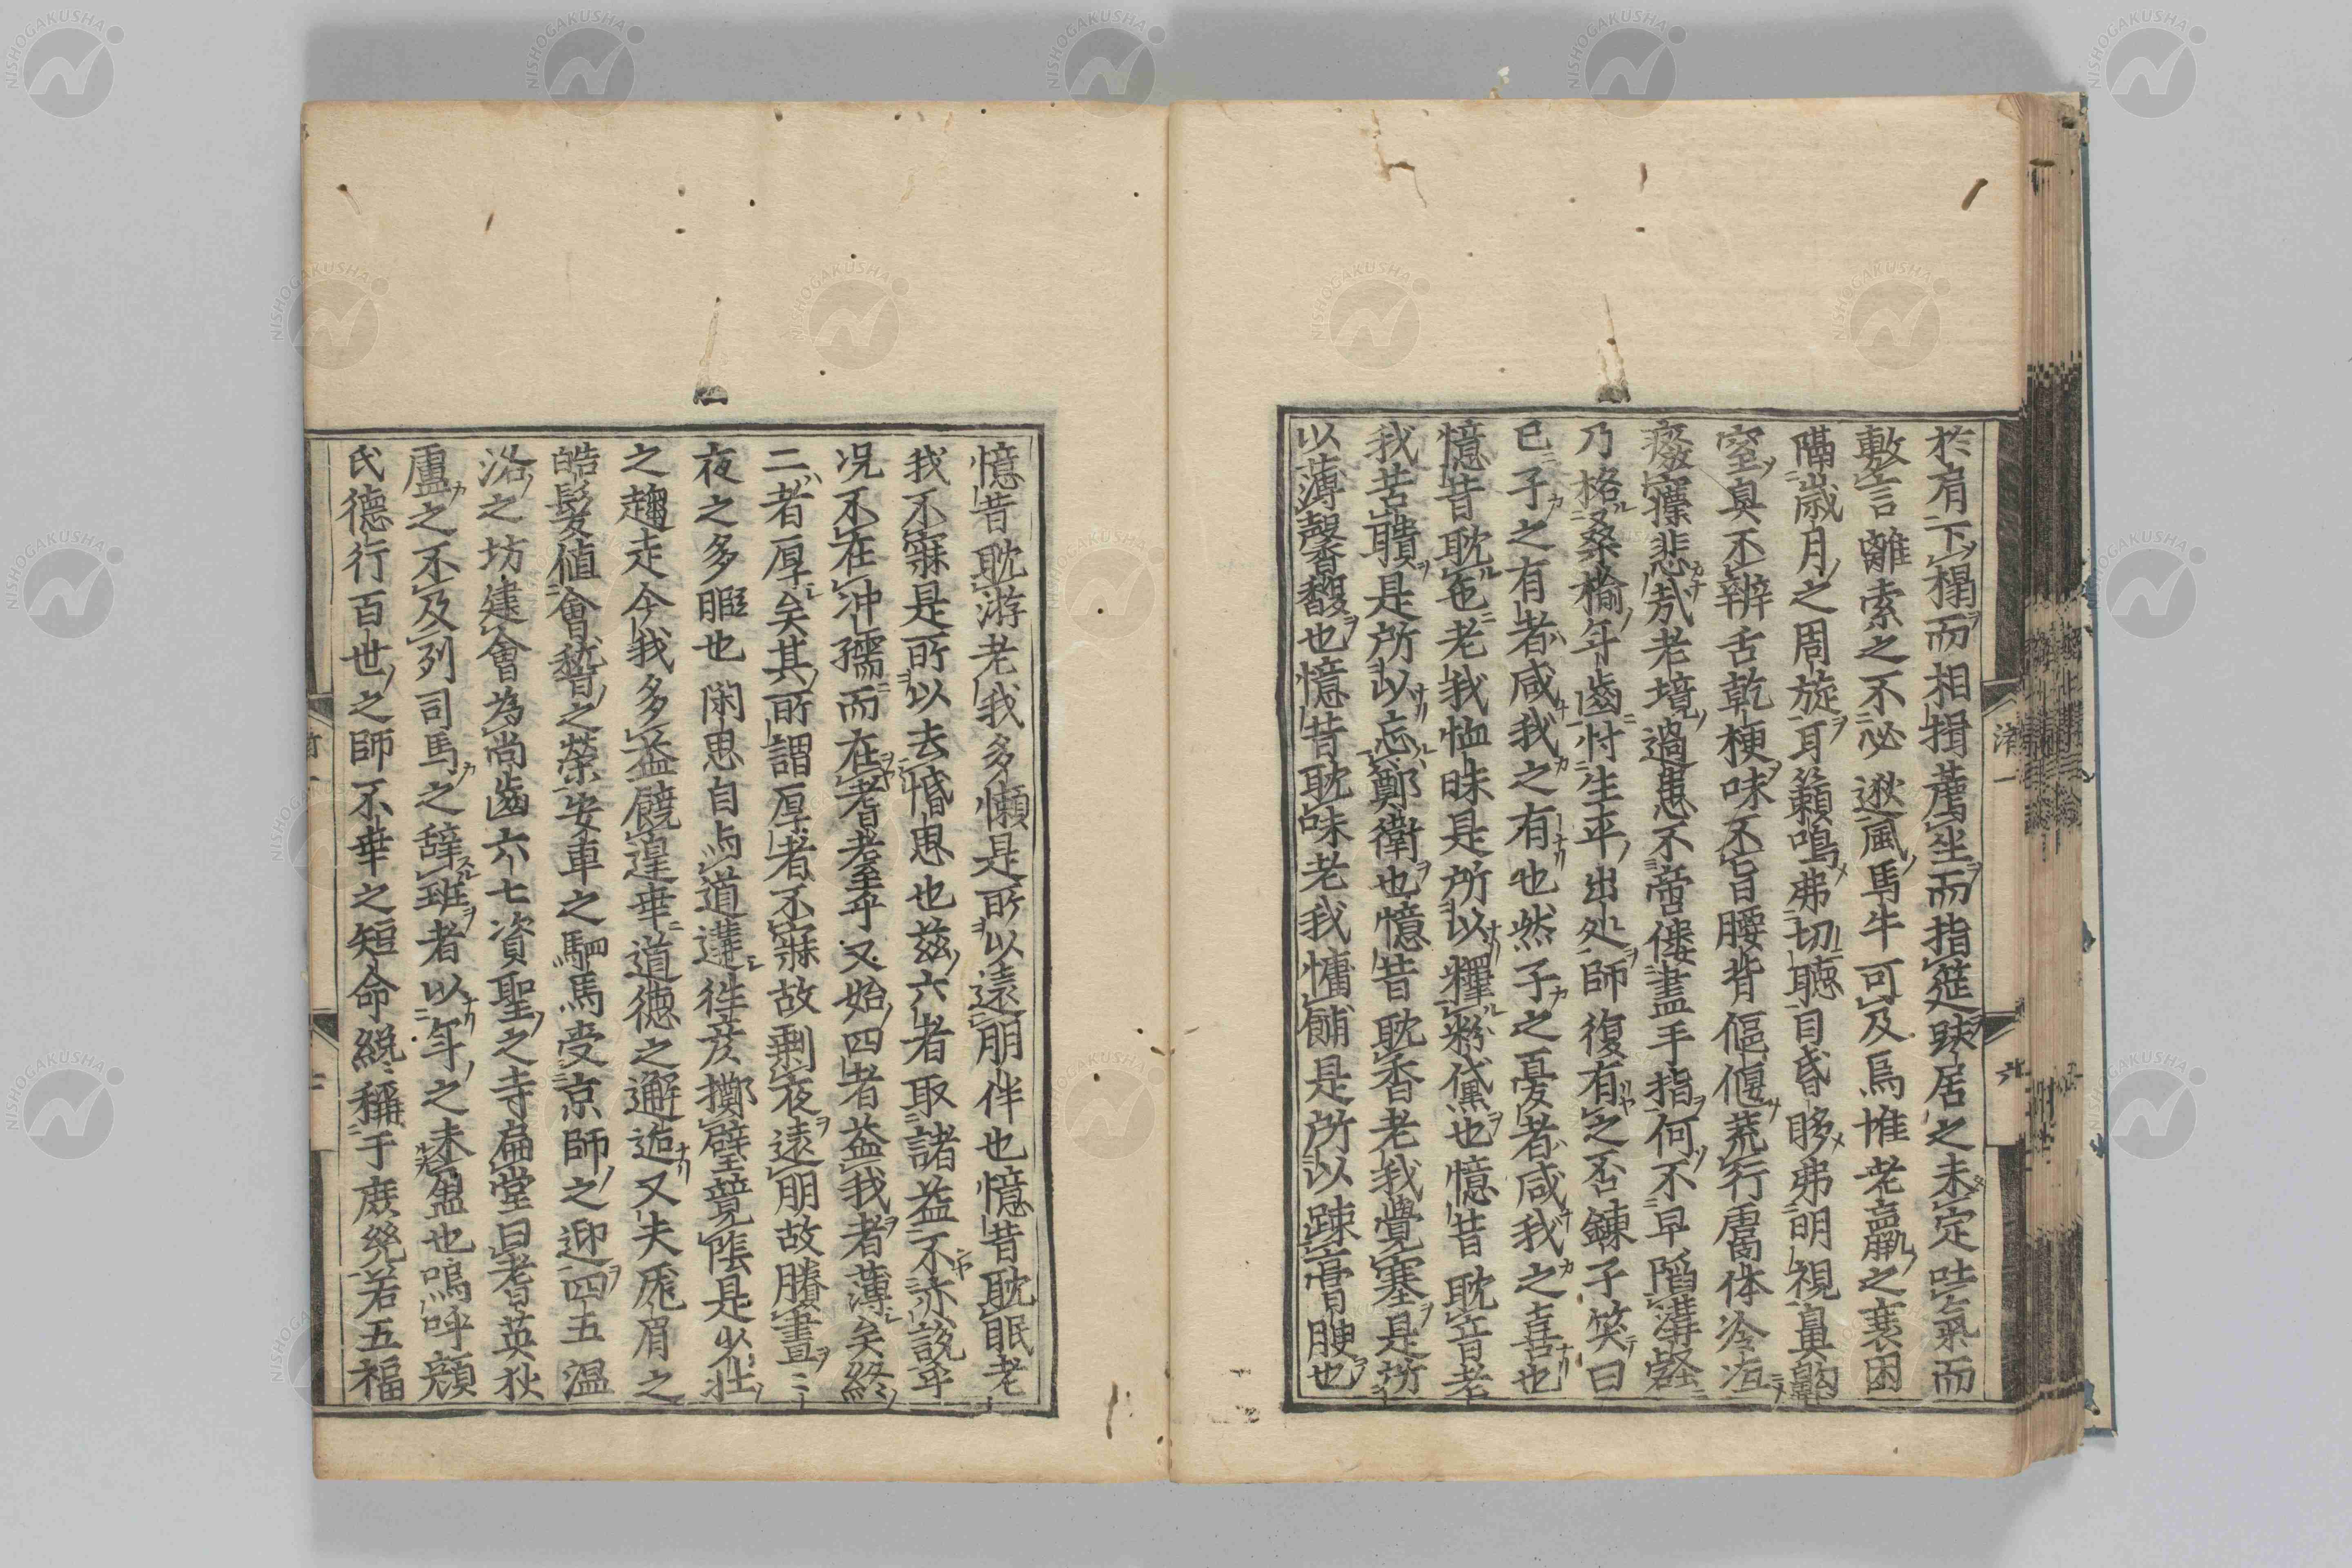 於肩下榻而相揖薦坐而指筵趺居之未定呿氣而
敷言離索之不必遬風馬牛可及烏惟老羸之衰困
隔歳月之周旋耳籟鳴弗切聴目昏眵弗明視鼻齁
窒臭不辨舌乾梗味不旨腰背傴偃蒸行膚体冷冱
癈癴悲哉老境過患不啻僂盡手指何不早陷溝壑
乃格桑榆年齒忖生平出処師復有之否鍊子笑曰
已子之有者咸我之有也然子之憂者咸我之喜也
憶昔耽色老我恤昧是所以糶粉黛也憶昔耽音老
我苦聵是所以忘鄭衛也憶昔耽香老我覺塞是所
以薄馨馥也憶昔耽味老我慵餔是所以疎膏腴也
憶昔耽游老我多懶是所以遠朋伴也憶昔耽眠老
我不寐是所以去惛思也茲六者取諸益不亦説乎
况不在冲孺而在耆耄至乎又始四者益我者薄矣終
二者厚矣其所謂厚者不寐故剰夜遠朋故賸晝
夜之多暇也閑思自与道蓬徃彦擲璧競陰是少壮
之趨走今我多益饒遑華道德之邂逅又夫厖眉之
皓髮値會嵆之榮安車之駟馬受京師之迎四五温
洛之坊建會為尚齒六七資聖之寺扁堂曰耆英狄
盧之不及列司馬之辞班者以年之未盈也嗚呼顔
氏德行百世之師不幸之短命終稱于庶㡬若五福
渚一